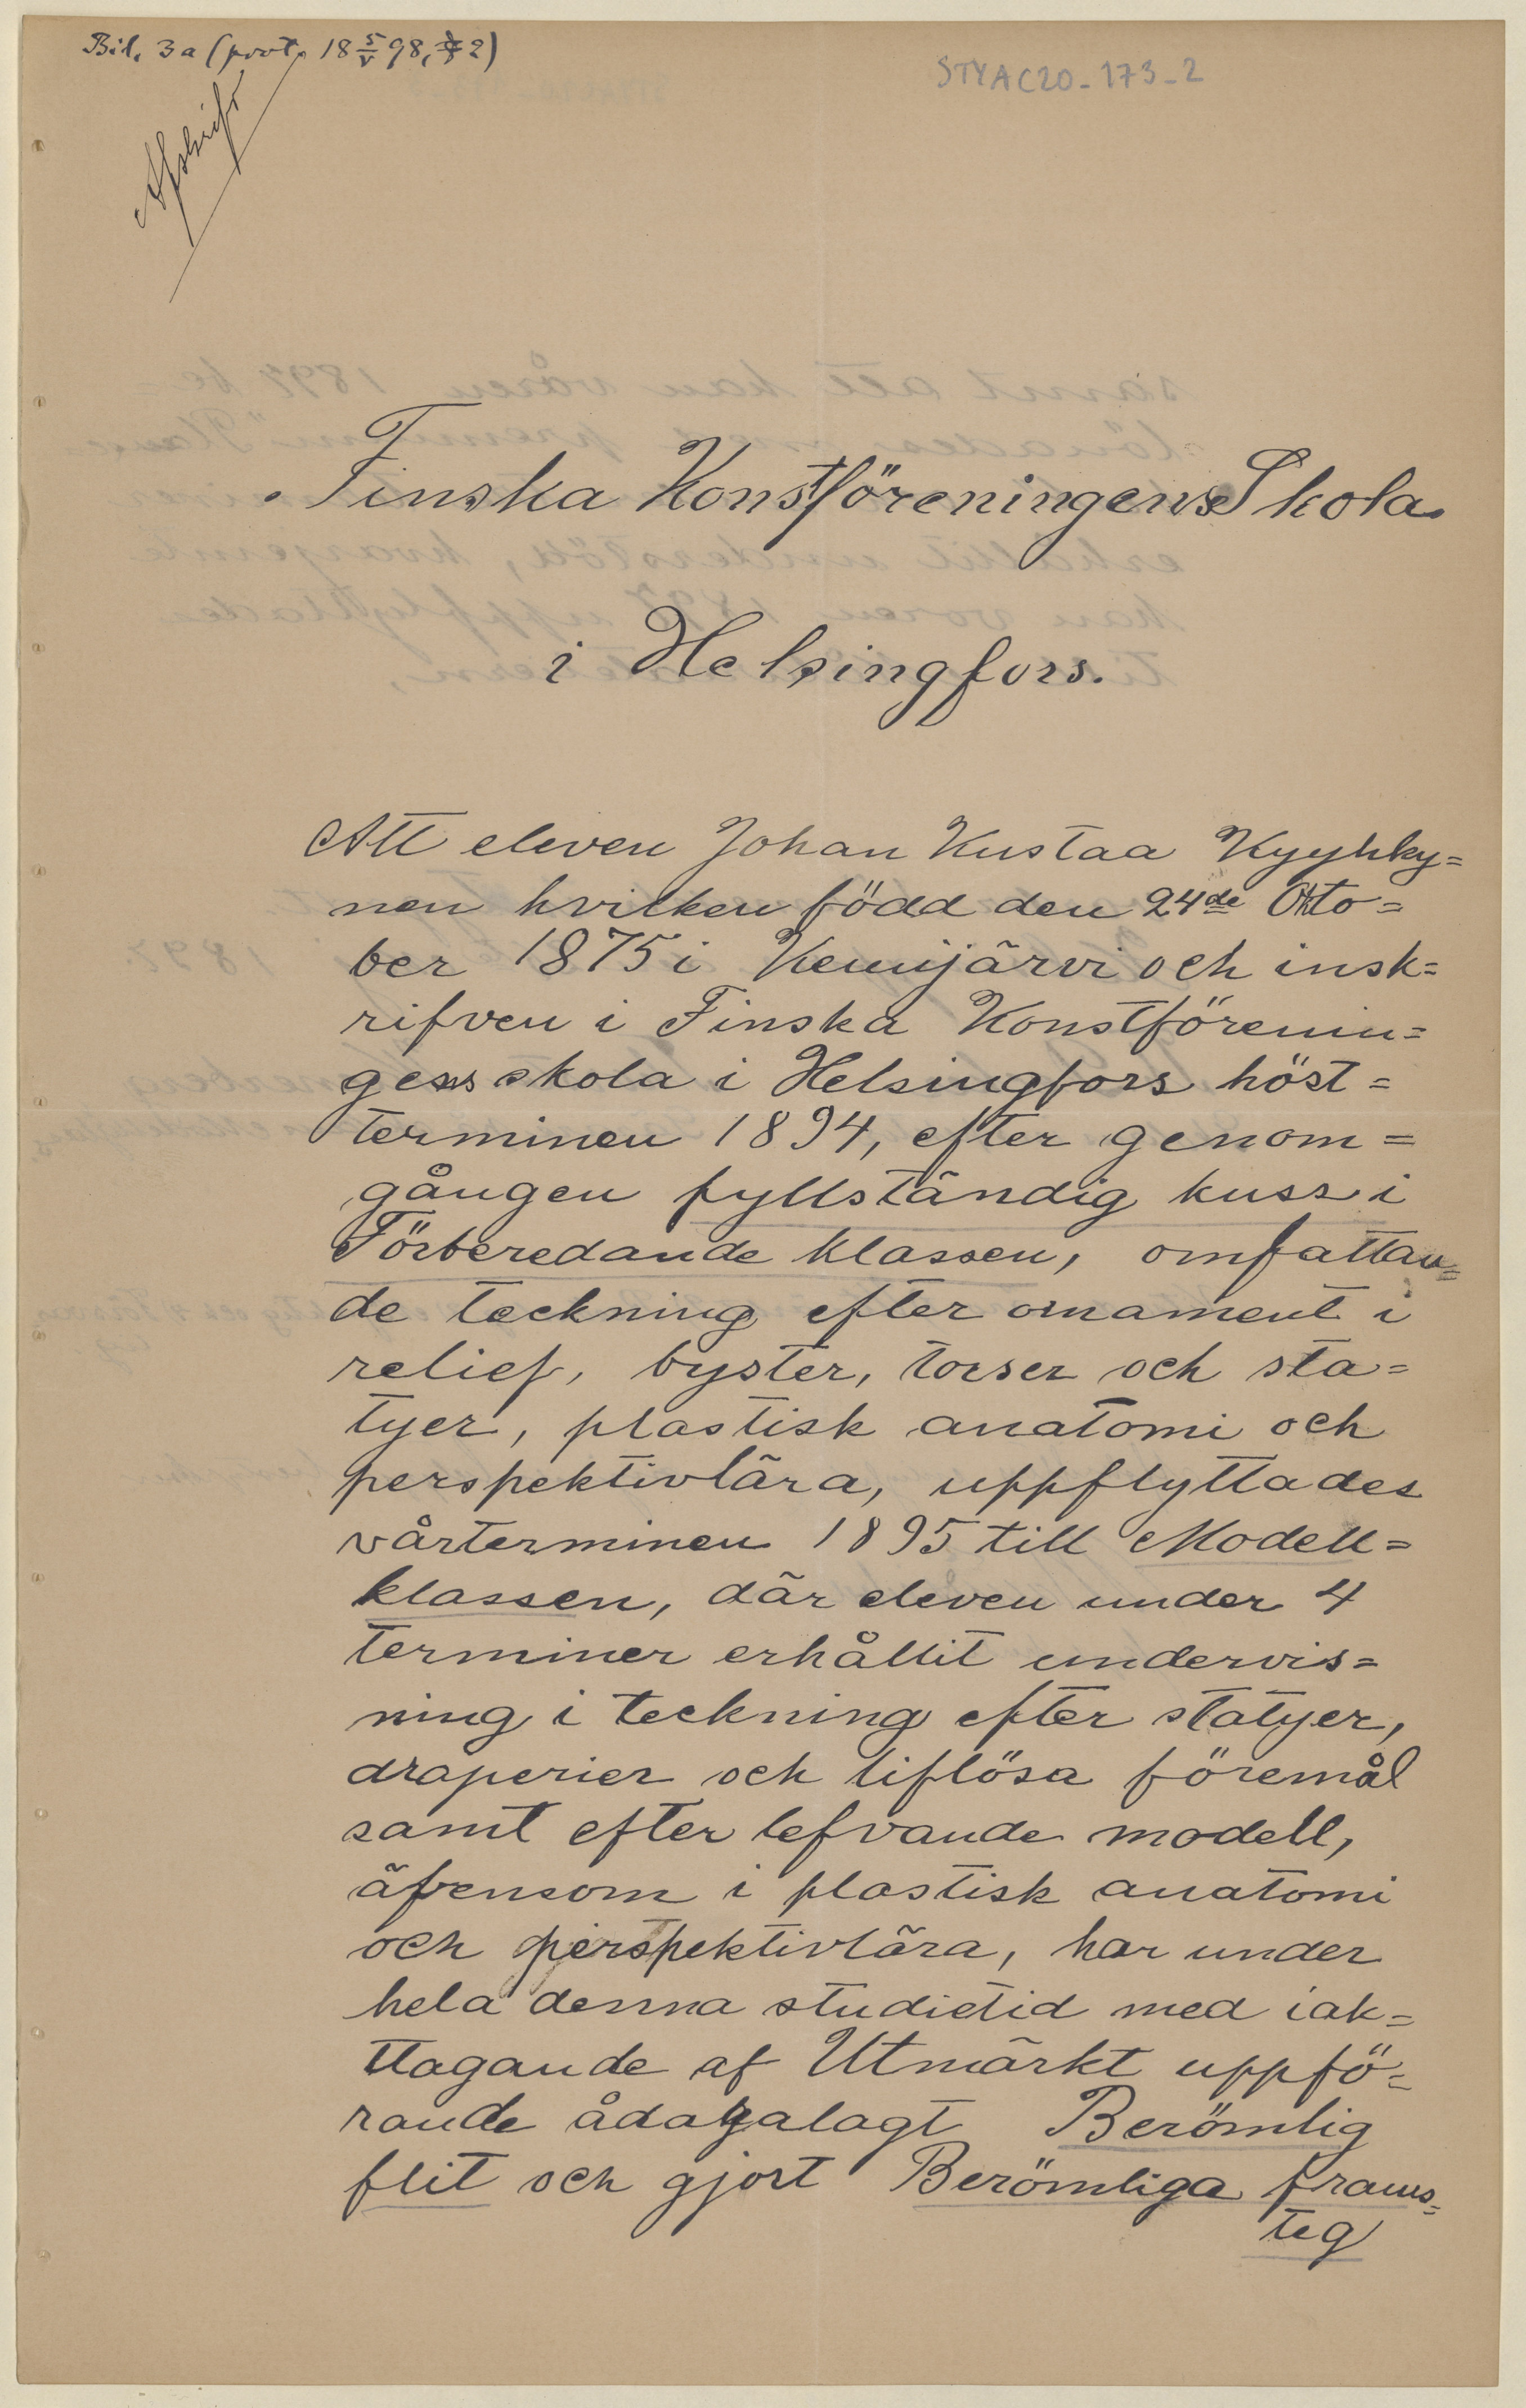 Bil. 3a (prot. 18 5/V 98, § 2)
STYA C20-173-2
Afskrift
Finska Konstföreningens Skola
i Helsingfors.
Att eleven Johan Kustaa Kyyhky=
nen hvilken född den 24de Okto=
ber 1875 i Kemijärvi och insk=
rifven i Finska Konstförenin=
gens skola i Helsingfors höst=
terminen 1894, efter genom=
gången fyllständig kuss i
Förberedande klassen, omfattan=
de teckning efter ornament i
relief, byster, torser och sta=
tyer, plastisk anatomi och
perspektivlära, uppflyttades
vårterminen 1895 till Modell=
klassen, där eleven under 4
terminer erhållit undervis=
ning i teckning efter statyer,
draperier och liflösa föremål
samt efter lefvande modell,
äfvensom i plastisk anatomi
och perspektivlära, har under
hela denna studietid med iak=
ttagande af Utmärkt uppfö=
rande ådagalagt Berömlig
flit och gjort Berömliga frams=
teg